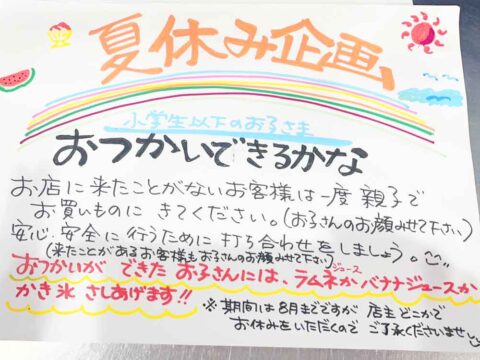 夏休み企画
小学生以下のお子さま
おつかいできるかな
お店に来たことがないお客様は一度 親子で
お買いものに きてください。(お子さんのお顔みせて下さい)
安心・安全に行うために打ち合わせをしましょう。
(来たことがあるお客様もお子さんのお顔みせて下さい)
おつかいが できた お子さんには、ラムネかバナナジュースか
ジュース
かき氷 さしあげます!!
※ 期間は8月までですが 店主 どこかで
お休みをいただくので ご了承くださいませ